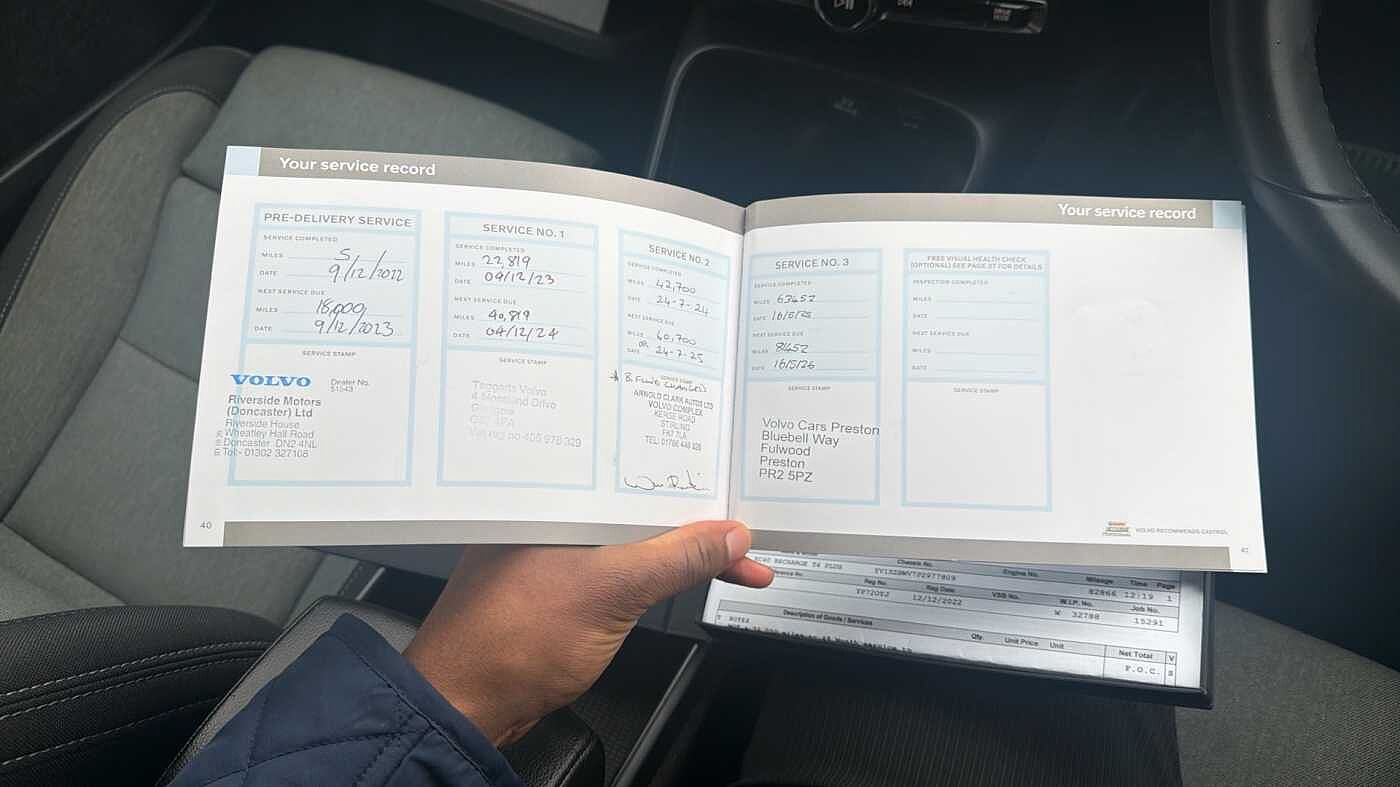 Your service record
PRE-DELIVERY SERVICE
SERVICE COMPLETED
MILES 5
DATE 9/12/2022
NEXT SERVICE DUE
MILES 18,000
DATE 9/12/2023
SERVICE STAMP
VOLVO Dealer No.
51543
Riverside Motors
(Doncaster) Ltd
Riverside House
Wheatley Hall Road
Doncaster DN2 4NL
Tel:- 01302 327108
SERVICE NO. 1
SERVICE COMPLETED
MILES 22,819
DATE 04/12/23
NEXT SERVICE DUE
MILES 40,819
DATE 04/12/24
SERVICE STAMP
Taggarts Volvo
4 Mossland Drive
Glasgow
Vat reg no 405 978 329
SERVICE NO. 2
SERVICE COMPLETED
MILES 42,700
DATE 24-7-24
NEXT SERVICE DUE
MILES 60,700
OR
DATE 24-7-25
SERVICE STAMP
* B. FLUID CHANGED
ARNOLD CLARK AUTOS LTD
VOLVO COMPLEX
KERSE ROAD
STIRLING
FK7 7LA
TEL: 01786
40
Your service record
SERVICE NO. 3
SERVICE COMPLETED
MILES 63452
DATE 16/5/25
NEXT SERVICE DUE
MILES 81452
DATE 16/5/26
SERVICE STAMP
Volvo Cars Preston
Bluebell Way
Fulwood
Preston
PR2 5PZ
FREE VISUAL HEALTH CHECK
(OPTIONAL) SEE PAGE 37 FOR DETAILS
INSPECTION COMPLETED
MILES
DATE
NEXT SERVICE DUE
MILES
DATE
SERVICE STAMP
VOLVO RECOMMENDS CASTROL
41
Chassis No. Engine No. Mileage Time Page
RECHARGE 82866 12:19 1
Reg No. Reg Date VSB No. W.I.P. No. Job No.
12/12/2022 W 32788 15291
Description of Goods / Services Qty. Unit Price Unit Net Total V
NOTES
F.O.C. S
DRIVE
MODE